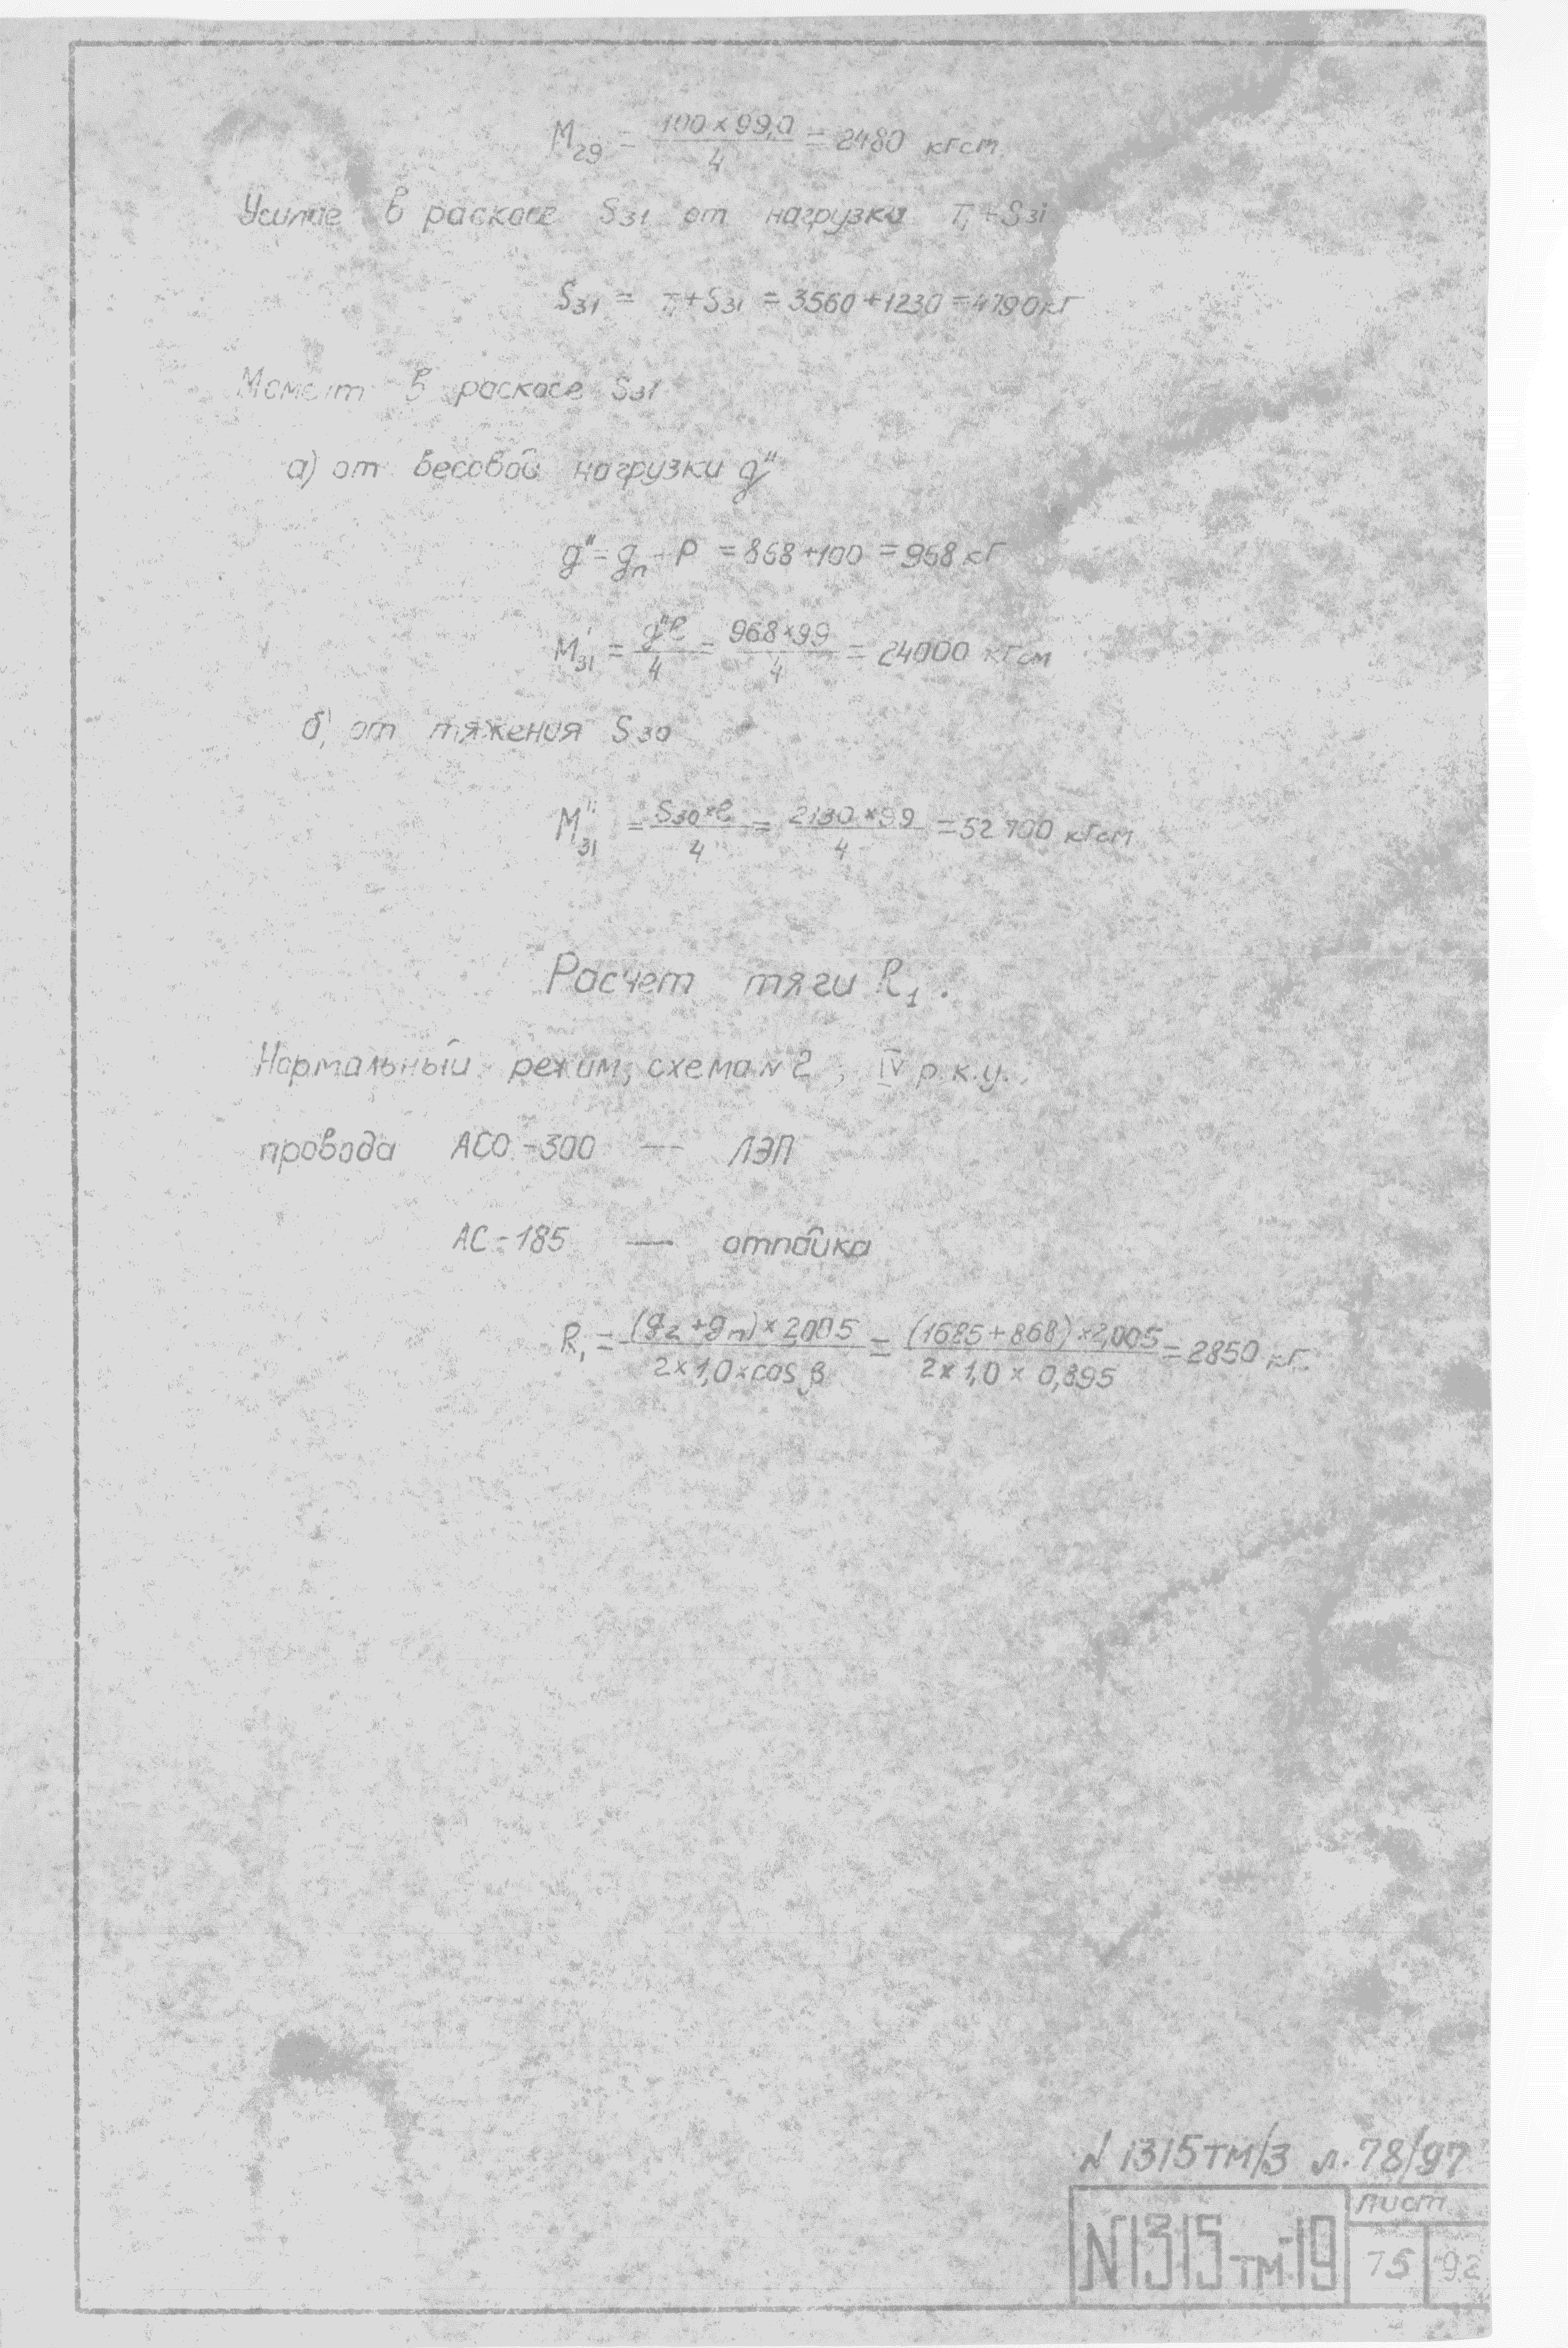 M₂₉ = 100×99,0 / 4 = 2480 кгсм
Усилие в раскосе S₃₁ от нагрузки T₁+S₃₁
S₃₁ = T₁+S₃₁ = 3560+1230 = 4790 кг
Момент в раскосе S₃₁
а) от весовой нагрузки g"
g" = gₙ + P = 868+100 = 968 кг
M'₃₁ = g"ℓ / 4 = 968×99 / 4 = 24000 кгсм
б) от тяжения S₃₀
M"₃₁ = S₃₀×ℓ / 4 = 2130×99 / 4 = 52700 кгсм
Расчет тяги R₁.
Нормальный режим, схема N2, IV р.к.у.
провода АСО-300 — ЛЭП
АС-185 — отпайка
R₁ = (g₂+gₙ)×2,005 / 2×1,0×cos β = (1685+868)×2,005 / 2×1,0×0,895 = 2850 кг.
N 1315тм/3 л.78/97
N1315тм-19
лист
75 92